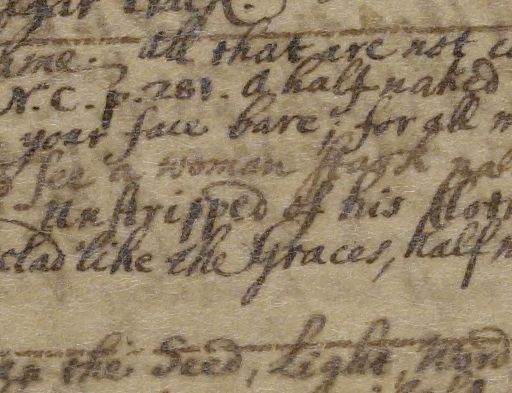 hme. All that are not
N. C. p. 281. A half naked
your face bare; for all
see a woman stark
Unstripped of his
clad like the Graces, half
the Seed, Light,